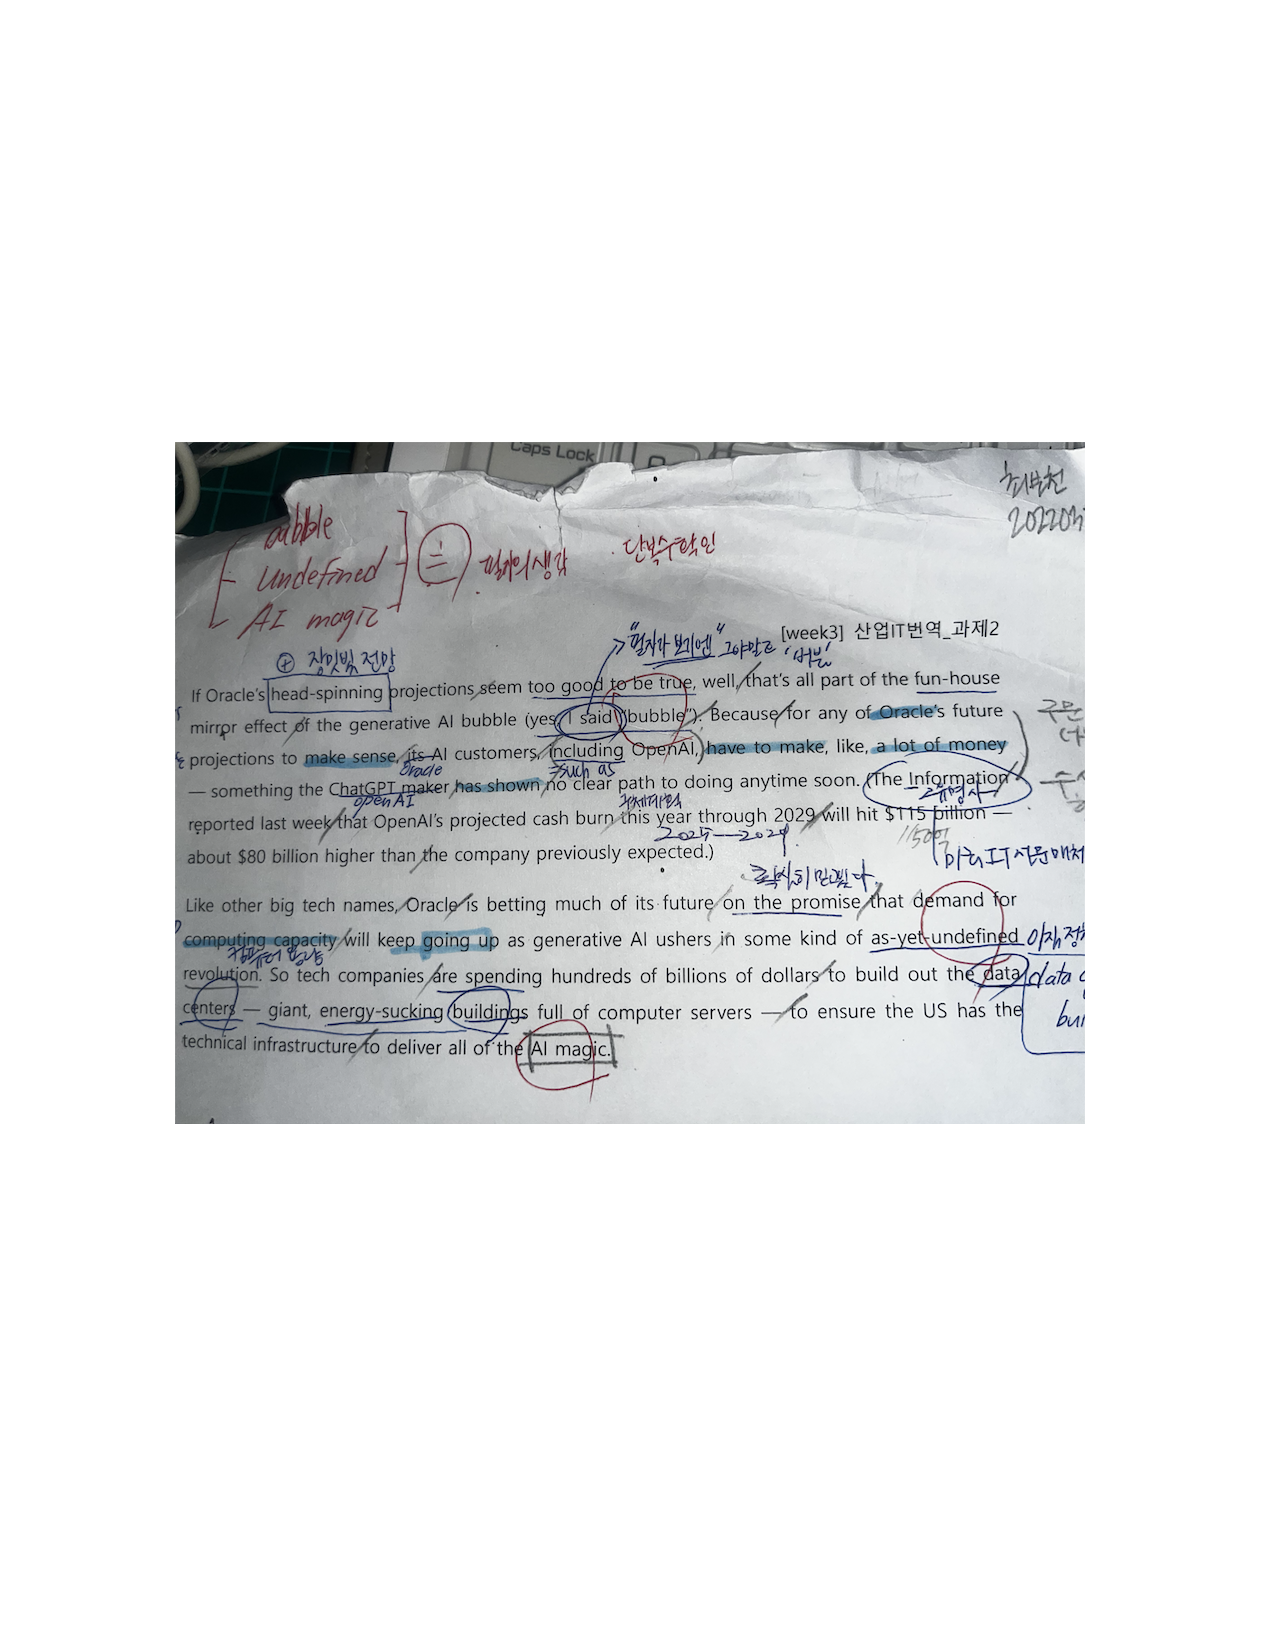 Caps Lock
bubble
undefined
AI magic
필자의 생각
단복수 확인
[week3] 산업IT번역_과제2
"필자가 보기엔" 그야말로 '버블'
⊕ 장밋빛 전망
If Oracle's head-spinning projections seem too good to be true, well, that's all part of the fun-house
mirror effect of the generative AI bubble (yes, I said "bubble"). Because for any of Oracle's future
projections to make sense, its AI customers, including OpenAI, have to make, like, a lot of money
Oracle
=such as
— something the ChatGPT maker has shown no clear path to doing anytime soon. (The Information
openAI
고유명사
reported last week that OpenAI's projected cash burn this year through 2029 will hit $115 billion —
2025—2029
1150억
about $80 billion higher than the company previously expected.)
미국 IT 전문매체
Like other big tech names, Oracle is betting much of its future on the promise that demand for
computing capacity will keep going up as generative AI ushers in some kind of as-yet-undefined
컴퓨터 용량
revolution. So tech companies are spending hundreds of billions of dollars to build out the data
data
centers — giant, energy-sucking buildings full of computer servers — to ensure the US has the
technical infrastructure to deliver all of the AI magic.